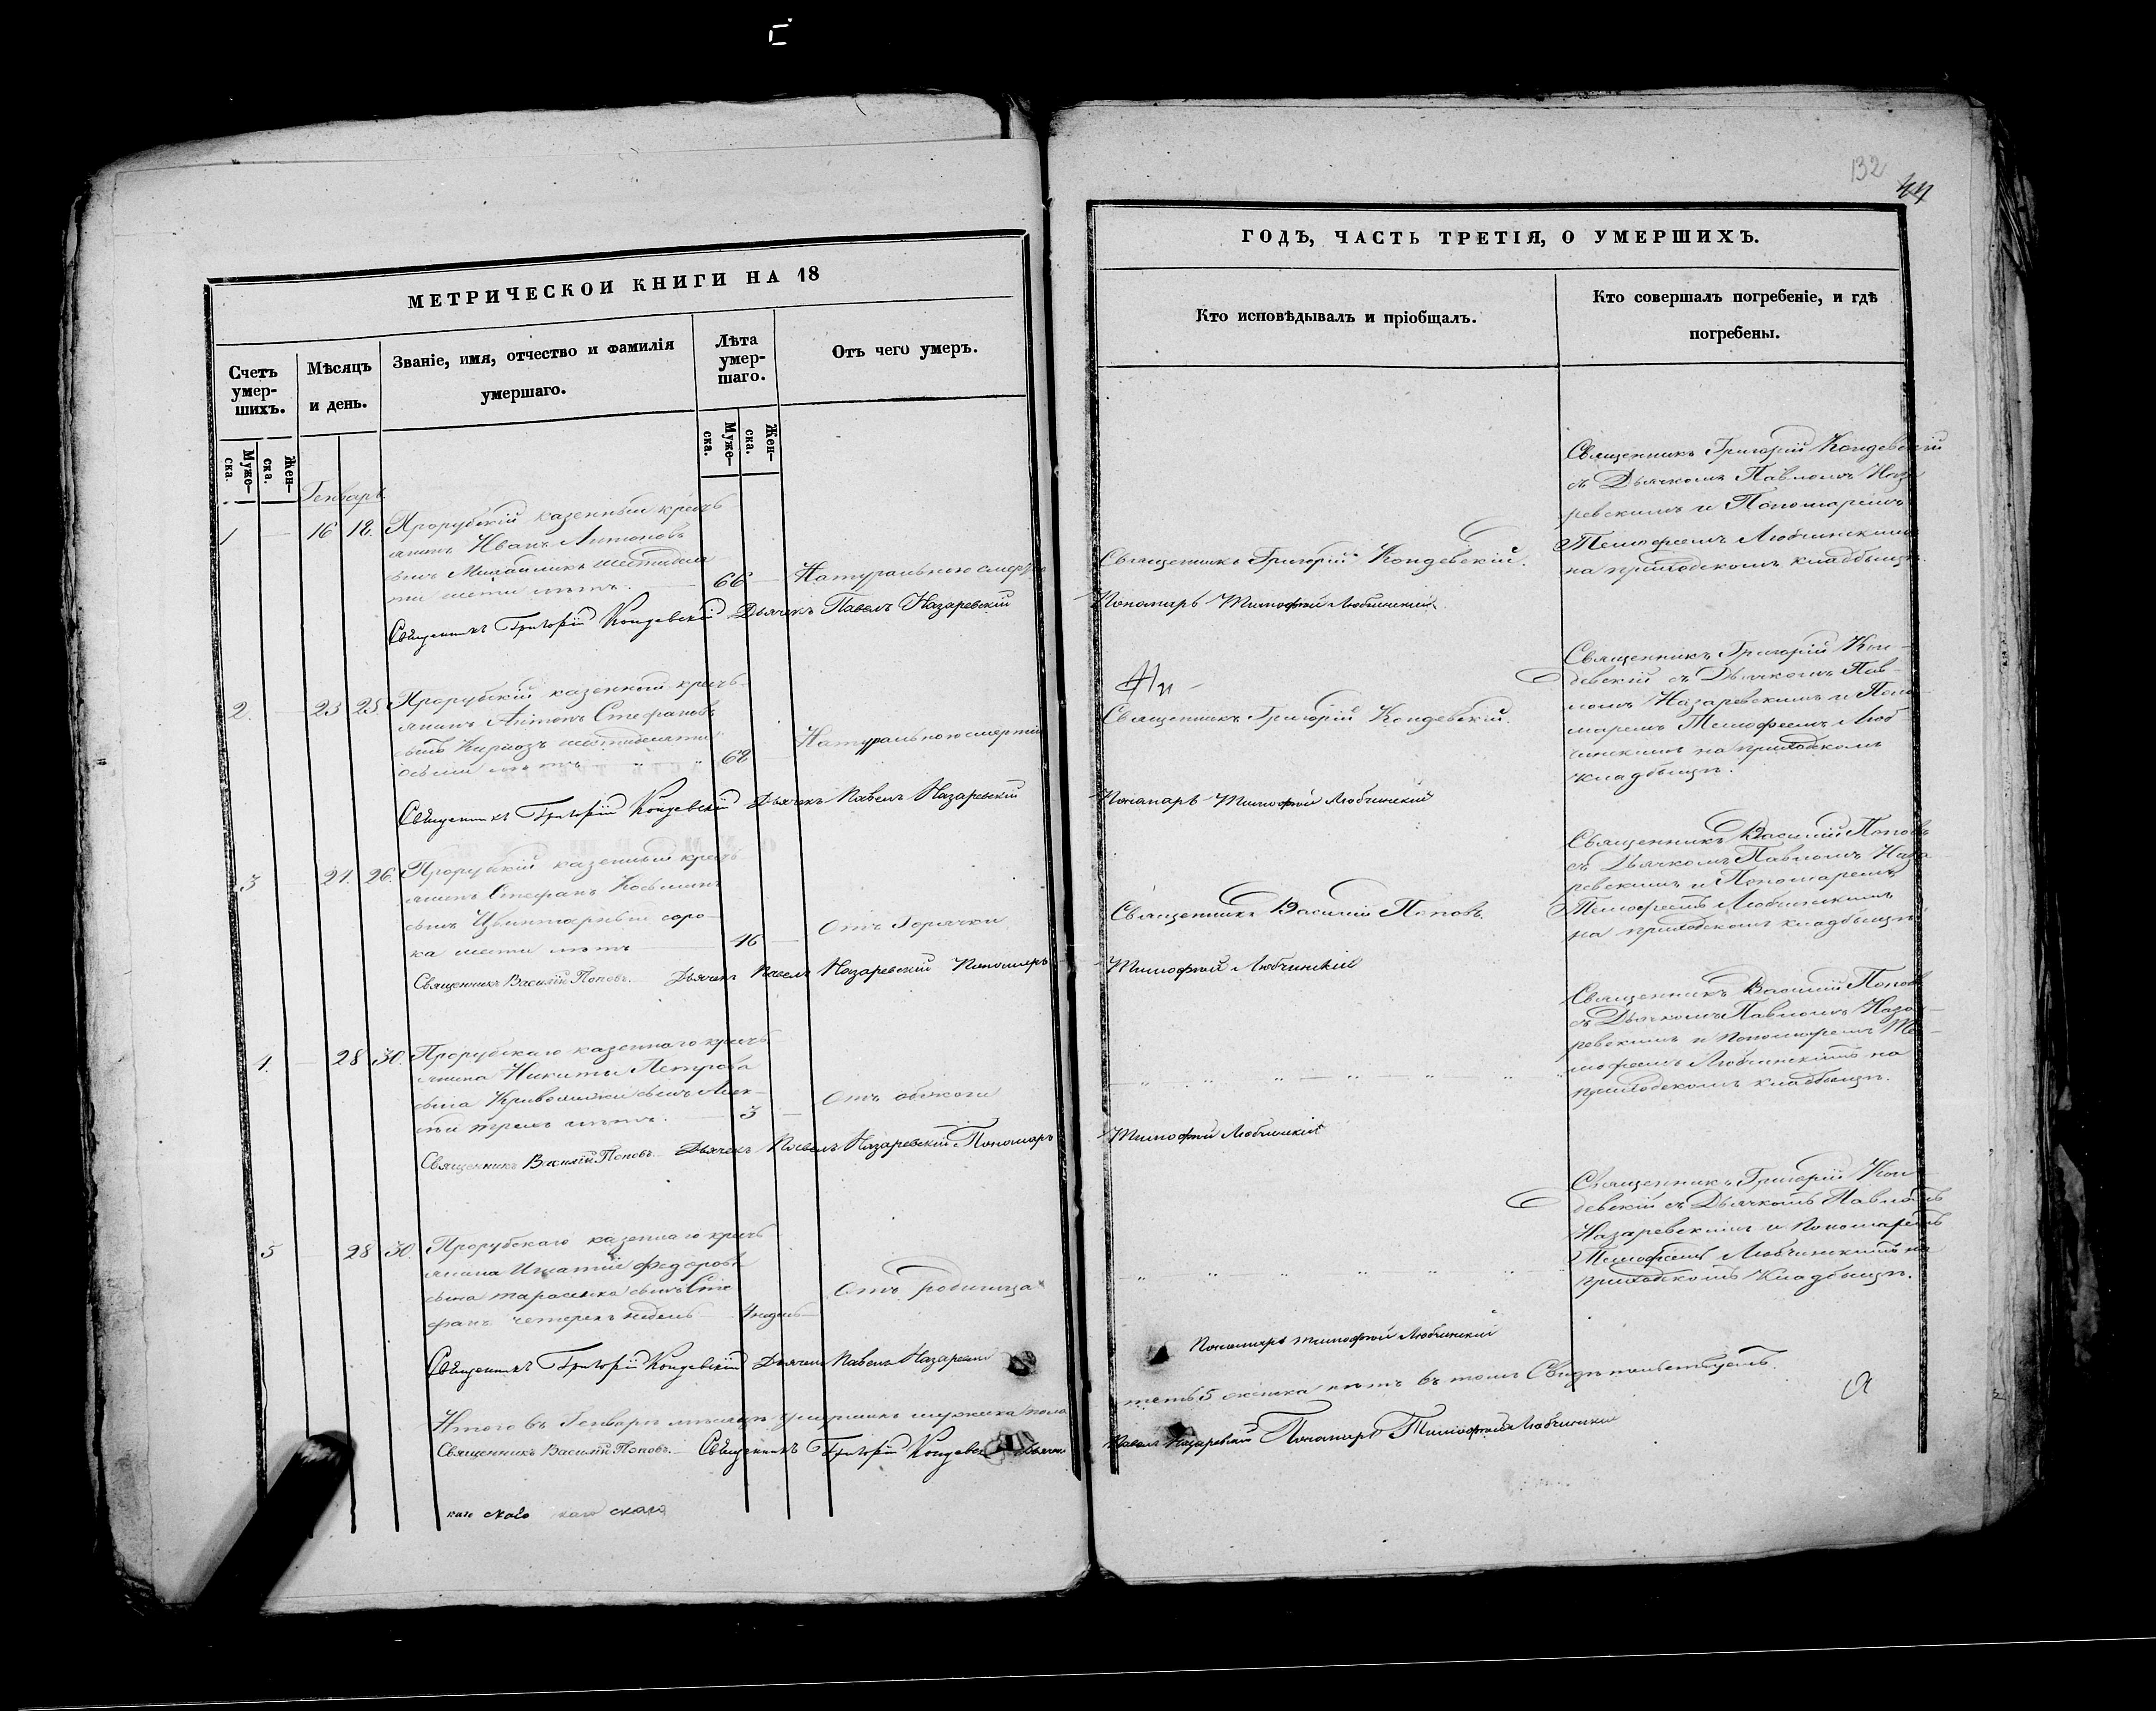 132
44
МЕТРИЧЕСКОЙ КНИГИ НА 18
ГОДЪ, ЧАСТЬ ТРЕТІЯ, О УМЕРШИХЪ.
Счетъ умер-шихъ.
Мѣсяцъ и день.
Званіе, имя, отчество и фамилія
умершаго.
Лѣта умер-шаго.
Отъ чего умеръ.
Кто исповѣдывалъ и пріобщалъ.
Кто совершалъ погребеніе, и гдѣ
погребены.
Муже-ска.
Жен-ска.
Муже-ска.
Жен-ска.
Генварь
1 16 18. Прорубскій казенный кресть
янинъ Иванъ Антоновъ
сынъ шестидеся
ти шести лѣтъ. 66 Натуральною смертію
Священникъ Григорій Кондевскій Дьячекъ Павелъ Назаревскій
Священникъ Григорій Кондевскій.
Пономарь Тимофей Любчинскій
Священникъ Григорій Кондевскій
съ Дьячкомъ Павломъ Наза
ревскимъ и Пономаремъ
Тимофеемъ Любчинскимъ
на приходскомъ кладбищѣ.
2. 23 25 Прорубскій казенный кресть
янинъ Антонъ Стефановъ
сынъ шестидесяти
осьми лѣтъ 68 Натуральною смертію
Священникъ Григорій Кондевскій Дьячекъ Павелъ Назаревскій
Священникъ Григорій Кондевскій.
Пономарь Тимофей Любчинскій
Священникъ Григорій Кон-
девскій съ Дьячкомъ Пав-
ломъ Назаревскимъ и Поно
маремъ Тимофеемъ Люб
чинскимъ на приходскомъ
кладбищѣ.
3 24. 26. Прорубскій казенный кресть
янинъ Стефанъ Косминъ
сынъ Цвинтарный соро-
ка шести лѣтъ 46 Отъ Горячки
Священникъ Василій Поповъ. Дьячекъ Павелъ Назаревскій Пономарь
Священникъ Василій Поповъ.
Тимофей Любчинскій
Священникъ Василій Поповъ
съ Дьячкомъ Павломъ Наза
ревскимъ и Пономаремъ
Тимофеемъ Любчинскимъ
на приходскомъ кладбищѣ.
4. 28 30. Прорубскаго казеннаго кресть
янина Никиты Петрова
сына сынъ Алек-
сѣй трехъ лѣтъ. 3
Священникъ Василій Поповъ. Дьячекъ Павелъ Назаревскій Пономарь
Тимофей Любчинскій
Священникъ Василій Поповъ
съ Дьячкомъ Павломъ Наза-
ревскимъ и Пономаремъ Ти-
мофеемъ Любчинскимъ на
приходскомъ кладбищѣ.
5 28 30. Прорубскаго казеннаго кресть
янина Игнатія Федорова
сына Тарасенка сынъ Сте
фанъ четерехъ недель 4 недель Отъ родимца
Священникъ Григорій Кондевскій Дьячекъ Павелъ Назаревскій
Пономарь Тимофей Любчинскій
Священникъ Григорій Кон
девскій съ Дьячкомъ Павломъ
Назаревскимъ и Пономаремъ
Тимофеемъ Любчинскимъ на
приходскомъ кладбищѣ.
Итого въ Генварѣ мѣсяцѣ умершихъ мужеска пола
пять 5 женска нѣтъ въ томъ Свидѣтельствуемъ.
Священникъ Василій Поповъ. Священникъ Григорій Кондевскій Дьячекъ
Павелъ Назаревскій Пономарь Тимофей Любчинскій
каго скаго каго скаго